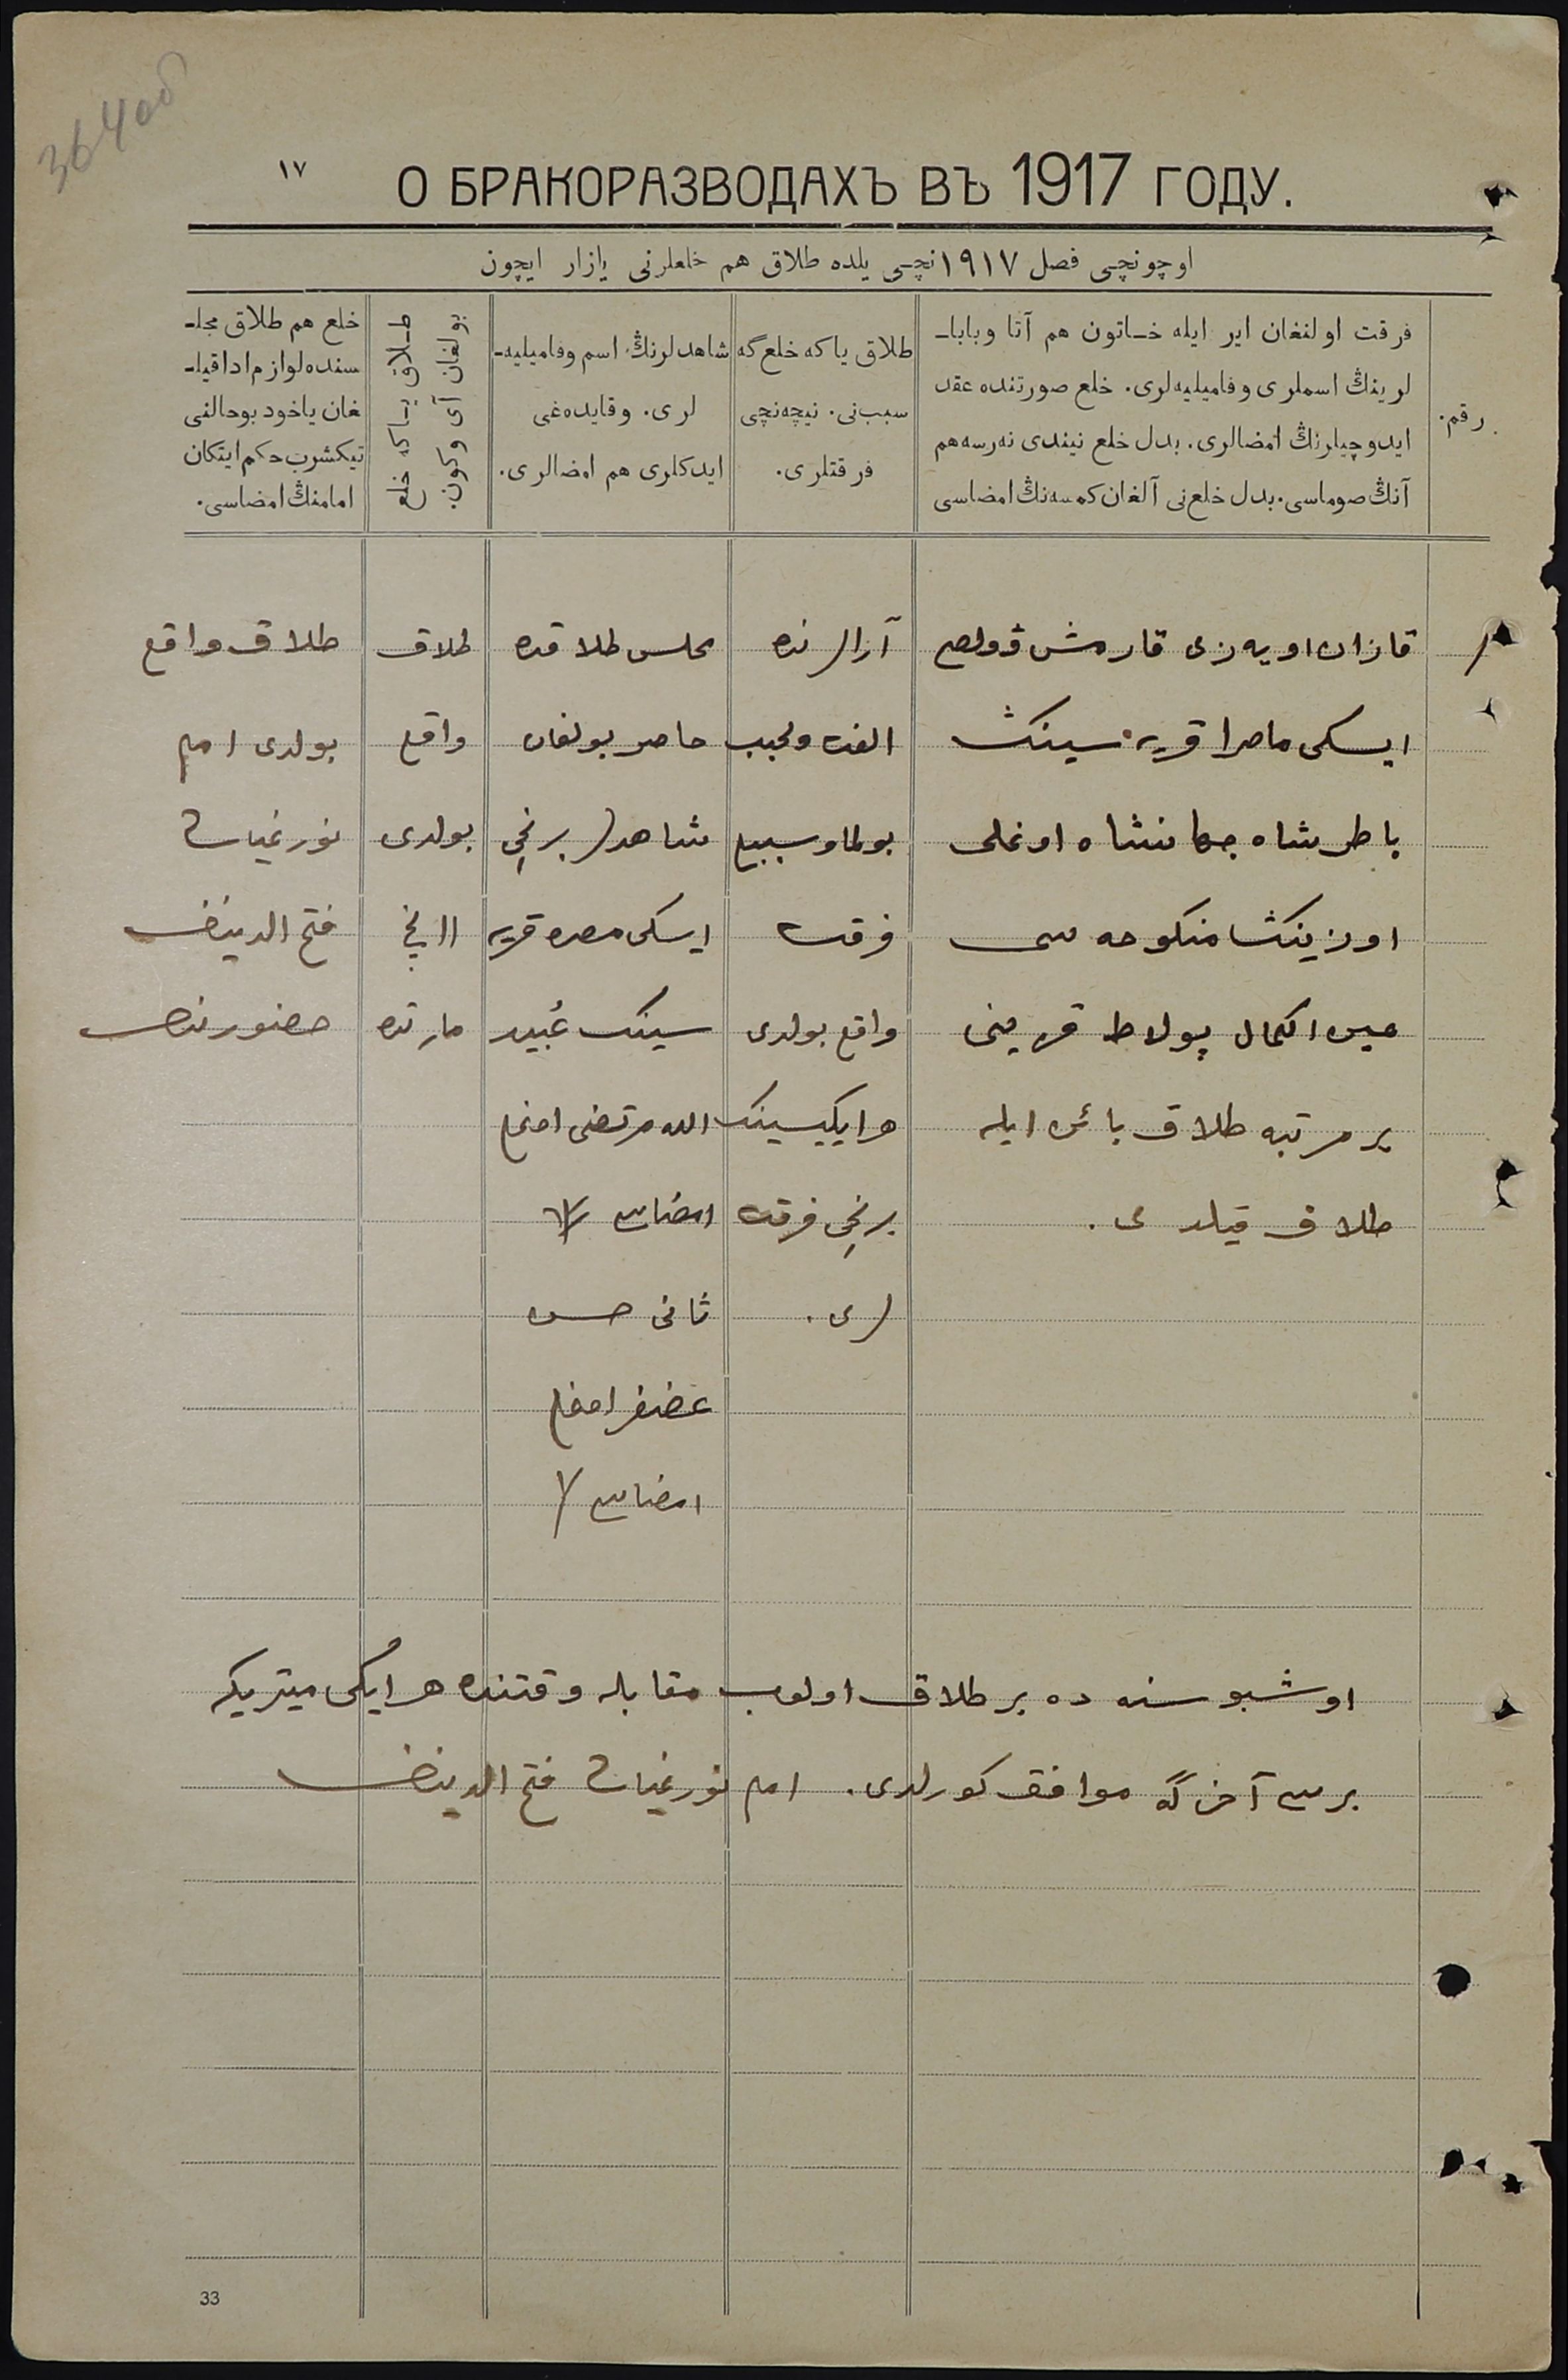 364 об
١٧
О БРАКОРАЗВОДАХЪ ВЪ 1917 ГОДУ.
اوچونچی فصل ١٩١٧نچی یلده طلاق هم خلعلرنی یازار ایچون
رقم.
فرقت اولنغان ایر ایله خـاتون هم آتا وبابا۔
لرینڭ اسملری وفامیلیه‌لری. خلع صورتنده عقد
ایدوچیلرنڭ امضالری. بدل خلع نیندی نه‌رسه هم
آنڭ صوماسی. بدل خلع‌نی آلغان کمسه‌نڭ امضاسی
طلاق یا که خلع گه
سبب‌نی. نیچه‌نچی
فرقتلری.
شاهدلرنڭ اسم وفامیلیه۔
لری. وقایده‌غی
ایدکلری هم امضالری.
طـلاق یـاکه خلع
بولغان آی وکون.
خلع هم طلاق مجلـ
سنده لوازم ادا قیلـ
غان یاخود بوحالنی
تیکشرب حکم ایتکان
امامنڭ امضاسی.
١
قازان اویه‌زی قارمش ۋولص
ایسکی ماصرا قریه‌سینڭ
باطرشاه جهانشاه اوغلی
اوزینڭ منکوحه سی
اکمال پولاط قزینی
بر مرتبه طلاق بائن ایله
طلاق قیلدی.
آرالرنده
الفت ومحبت
بولماو سببلی
فرقت
واقع بولدی
هر ایکیسینڭ
برنچی فرقت
لری.
مجلس طلاقده
حاضر بولغان
شاهدلر برنچی
ایسکی مصره قریه
سینڭ عبید
الله مرتضی اوغلی
امضاسی
ثانی حسن
غضنفر اوغلی
امضاسی
طلاق
واقع
بولدی
١١ نچی
مارتده
طلاق واقع
بولدی امام
نورغیاث
فتح الدینف
حضورنده
اوشبو سنه ده بر طلاق اولوب مقابله وقتنده هر ایکی میتریکه
برسی آخرگه موافق کورلدی. امام نورغیاث فتح الدینف
33